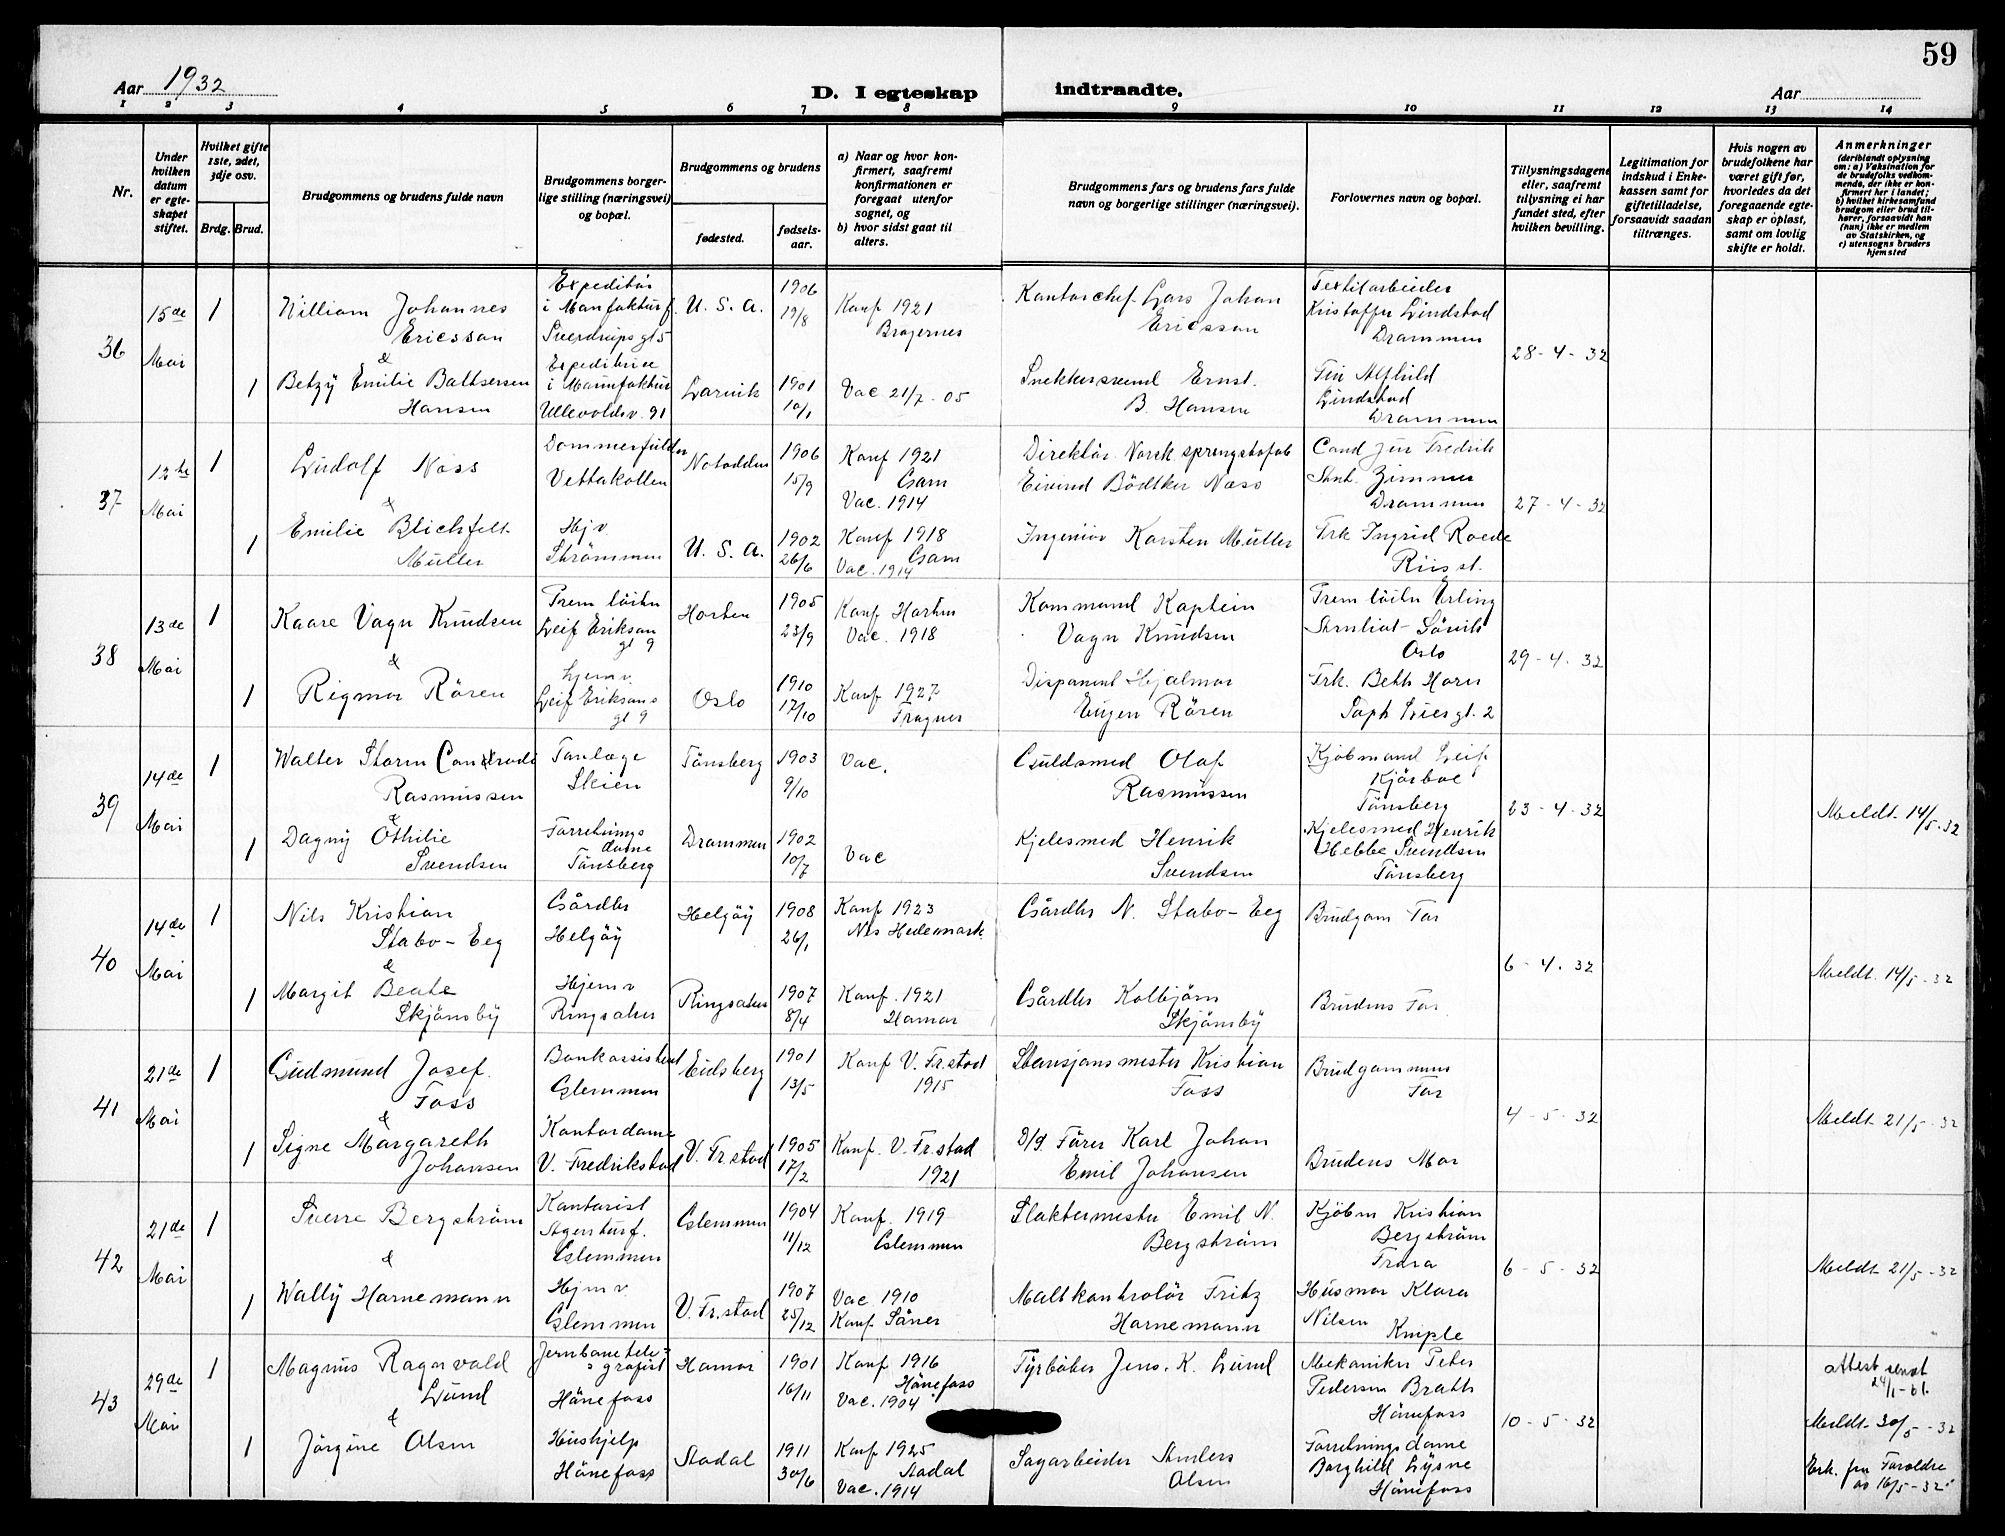 59
Aar 1932
D. I egteskap indtraadte.
Aar
1 2 3 4 5 6 7 8 9 10 11 12 13 14
Nr.
Under hvilken datum er egteskapet stiftet.
Hvilket gifte 1ste, 2det, 3dje osv.
Brdg. Brud.
Brudgommens og brudens fulde navn
Brudgommens borgerlige stilling (næringsvei) og bopæl.
Brudgommens og brudens
fødested.
fødselsaar.
a) Naar og hvor konfirmert, saafremt konfirmationen er foregaaet utenfor sognet, og
b) hvor sidst gaat til alters.
Brudgommens fars og brudens fars fulde navn og borgerlige stillinger (næringsvei).
Forlovernes navn og bopæl.
Tillysningsdagene eller, saafremt tillysning ei har fundet sted, efter hvilken bevilling.
Legitimation for indskud i Enkekassen samt for giftetilladelse, forsaavidt saadan tiltrænges.
Hvis nogen av brudefolkene har været gift før, hvorledes da det foregaaende egteskap er opløst, samt om lovlig skifte er holdt.
Anmerkninger
(deriblandt oplysning om: a) Vaksination for de brudefolks vedkommende, der ikke er konfirmert her i landet; b) hvilket kirkesamfund brudgom eller brud tilhører, forsaavidt han (hun) ikke er medlem av Statskirken, og c) utensogns bruders hjemsted
36
15de Mai
1
William Johannes
Ericsson
&
Expeditør
i Manufakturf.
Sverdrupsgt 5
U. S. A.
1906
19/8
Konf 1921
Bragernes
Kontorchef Lars Johan
Ericsson
Textilarbeider
Kristoffer Lindstad
Drammen
28-4-32
1
Betzy Emilie Baltsersen
Hansen
Expeditrice
i Manufaktur
Ullevoldsv. 91
Larvik
1901
10/1
Vac 21/7-05
Snekkersvend Ernst.
B. Hansen
Alfhild
Lindstad
Drammen
37
12te Mai
1
Ludolf Næss
&
Dommerfuldm
Vettakollen
Notodden
1906
15/9
Konf 1921
Gam
Vac. 1914
Direktør Norsk sprengstofab
Eivind Bödtker Næss
Cand jur Fredrik
Zimmer
Drammen
27-4-32
1
Emilie Blichfelt
Müller
Hjv.
Strømmen
U. S. A.
1902
26/6
Konf 1918
Gam
Vac. 1914
Ingeniør Karsten Müller
Frk Ingrid Roede
Riis st.
38
13de Mai
1
Kaare Vagn Knudsen
&
Prem löitn
Leif Eriksøn
gt 9
Horten
1905
23/9
Konf Horten
Vac. 1918
Kommand Kaptein
Vagn Knudsen
Prem löitn Erling
Oslo
29-4.32
1
Rigmor Rören
hjemv.
Leif Eriksøns
gt 9
Oslo
1910
17/10
Konf 1927
Frogner
Disponent Hjalmar
Eugen Rören
Frk. Beth Horn
Soph Liesgt. 2
39
14de Mai
1
Walter Storm Conradi
Rasmussen
&
Tanlæge
Skien
Tönsberg
1903
9/10
Vac.
Guldsmed Olaf
Rasmüssen
Kjöbmand Leif
Kjørboe
Tönsberg
23-4-32
Meldt 14/5-32
1
Dagny Othilie
Svendsen
Forretnings
dame
Tönsberg
Drammen
1902
10/7
Vac
Kjelesmed Henrik
Svendsen
Kjelesmed Henrik
Hebbe Svendsen
Tönsberg
40
14de Mai
1
Nils Kristian
Stabo-Eeg
&
Gårdbr
Helgöy
Helgöy
1908
26/1
Konf 1923
Nes Hedemark.
Gårdbr N. Stabo-Eeg
Brudgom Far
6-4.32
Meldt 14/5-32
1
Margit Beate
Skjönsby
Hjemv
Ringsaker
Ringsaker
1907
8/4
Konf. 1921
Hamar
Gårdbr Kolbjörn
Skjönsby
Brudens Far
41
21de Mai
1
Gudmund Josef.
Foss
&
Bankassistent
Glemmen
Eidsberg
1901
13/5
Konf V. Fr.stad
1915
Stasjonsmester Kristian
Foss
Brudgommens
Far
4-5-32
Meldt 21/5-32
1
Signe Margareth
Johansen
Kontordame
V. Fredrikstad
V. Fr.stad
1905
17/2
Konf. V. Fr.stad
1921
D/g. Förer Karl Johan
Emil Johansen
Brudens Mor
42
21de Mai
1
Sverre Bergström
&
Kontorist
Agenturf.
Glemmen
Glemmen
1904
11/12
Konf. 1919
Glemmen
Slaktermester Emil N.
Bergström
Kjöbm Kristian
Bergström
6-5-32
Meldt 21/5-32
1
Wally Hornemann
Hjmv
Glemmen
V. Fr.stad
1907
25/12
Vac 1910
Konf. Såner
Maltkontrolör Fritz
Hornemann
Husmor Klara
Nilsen
43
29de Mai
1
Magnus Ragnvald
Lund
&
Jernbanetele-
grafist
Hönefoss
Hamar
1901
16/11
Konf 1916
Hönefoss
Vac. 1904
Fyrböter Jens. K. Lund
Mekaniker Peter
Pedersen Brath
Hönefoss
10-5-32
Attest sendt
24/1-61.
Meldt 30/5-32
1
Jörgine Olsen
Hushjelp
Hönefoss
Aadal
1911
30/6
Konf 1925
Aadal
Vac. 1914
Sagarbeider Anders
Olsen
Forretningsdame
Borghild Lysne
Hönefoss
Erk. fra Foreldre
av 16/5-32